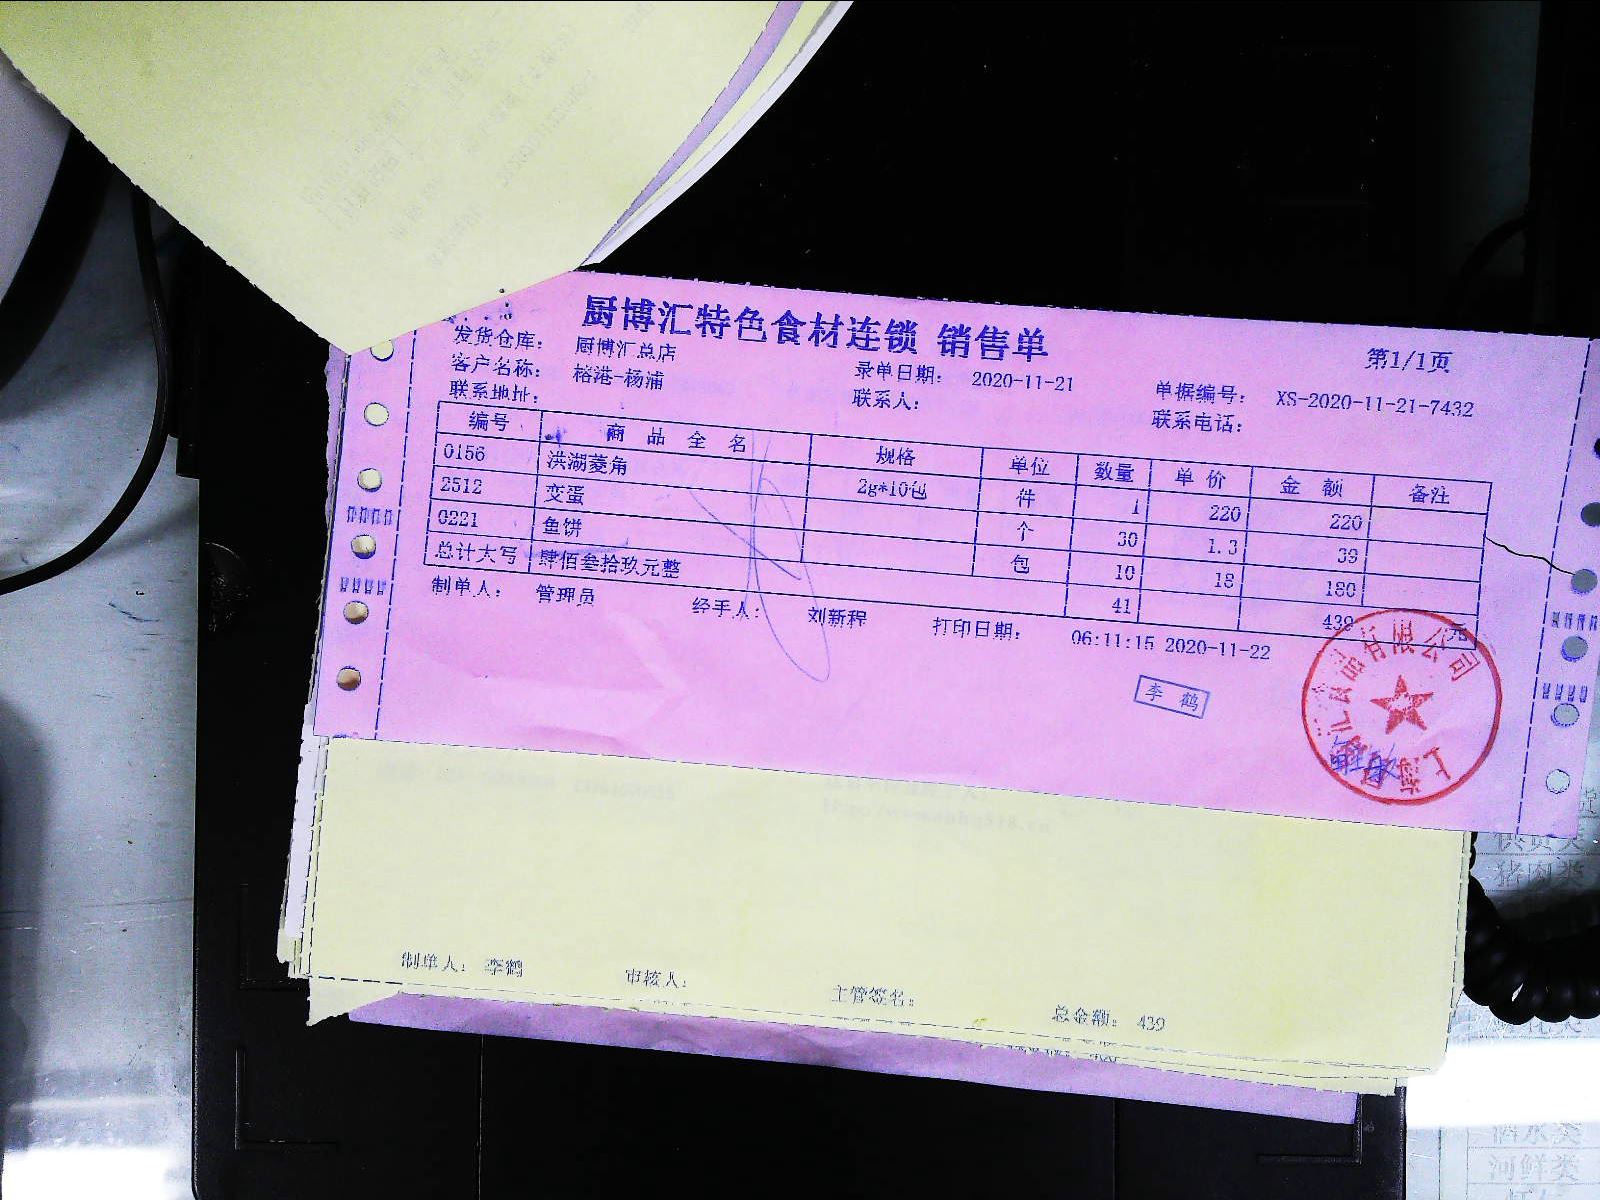 厨博汇特色食材连锁 销售单
第1/1页
发货仓库: 厨博汇总店
客户名称: 榕港-杨浦 录单日期: 2020-11-21 单据编号: XS-2020-11-21-7432
联系地址: 联系人: 联系电话:
编号 商品全名 规格 单位 数量 单价 金额 备注
0156 洪湖菱角 2g*10包 件 1 220 220
2512 变蛋 个 30 1.3 39
0221 鱼饼 包 10 18 180
总计大写 肆佰叁拾玖元整 41 439 元
制单人: 管理员 经手人: 刘新程 打印日期: 06:11:15 2020-11-22
李鹤
制单人: 李鹤 审核人: 主管签名: 总金额: 439
猪肉类
河鲜类